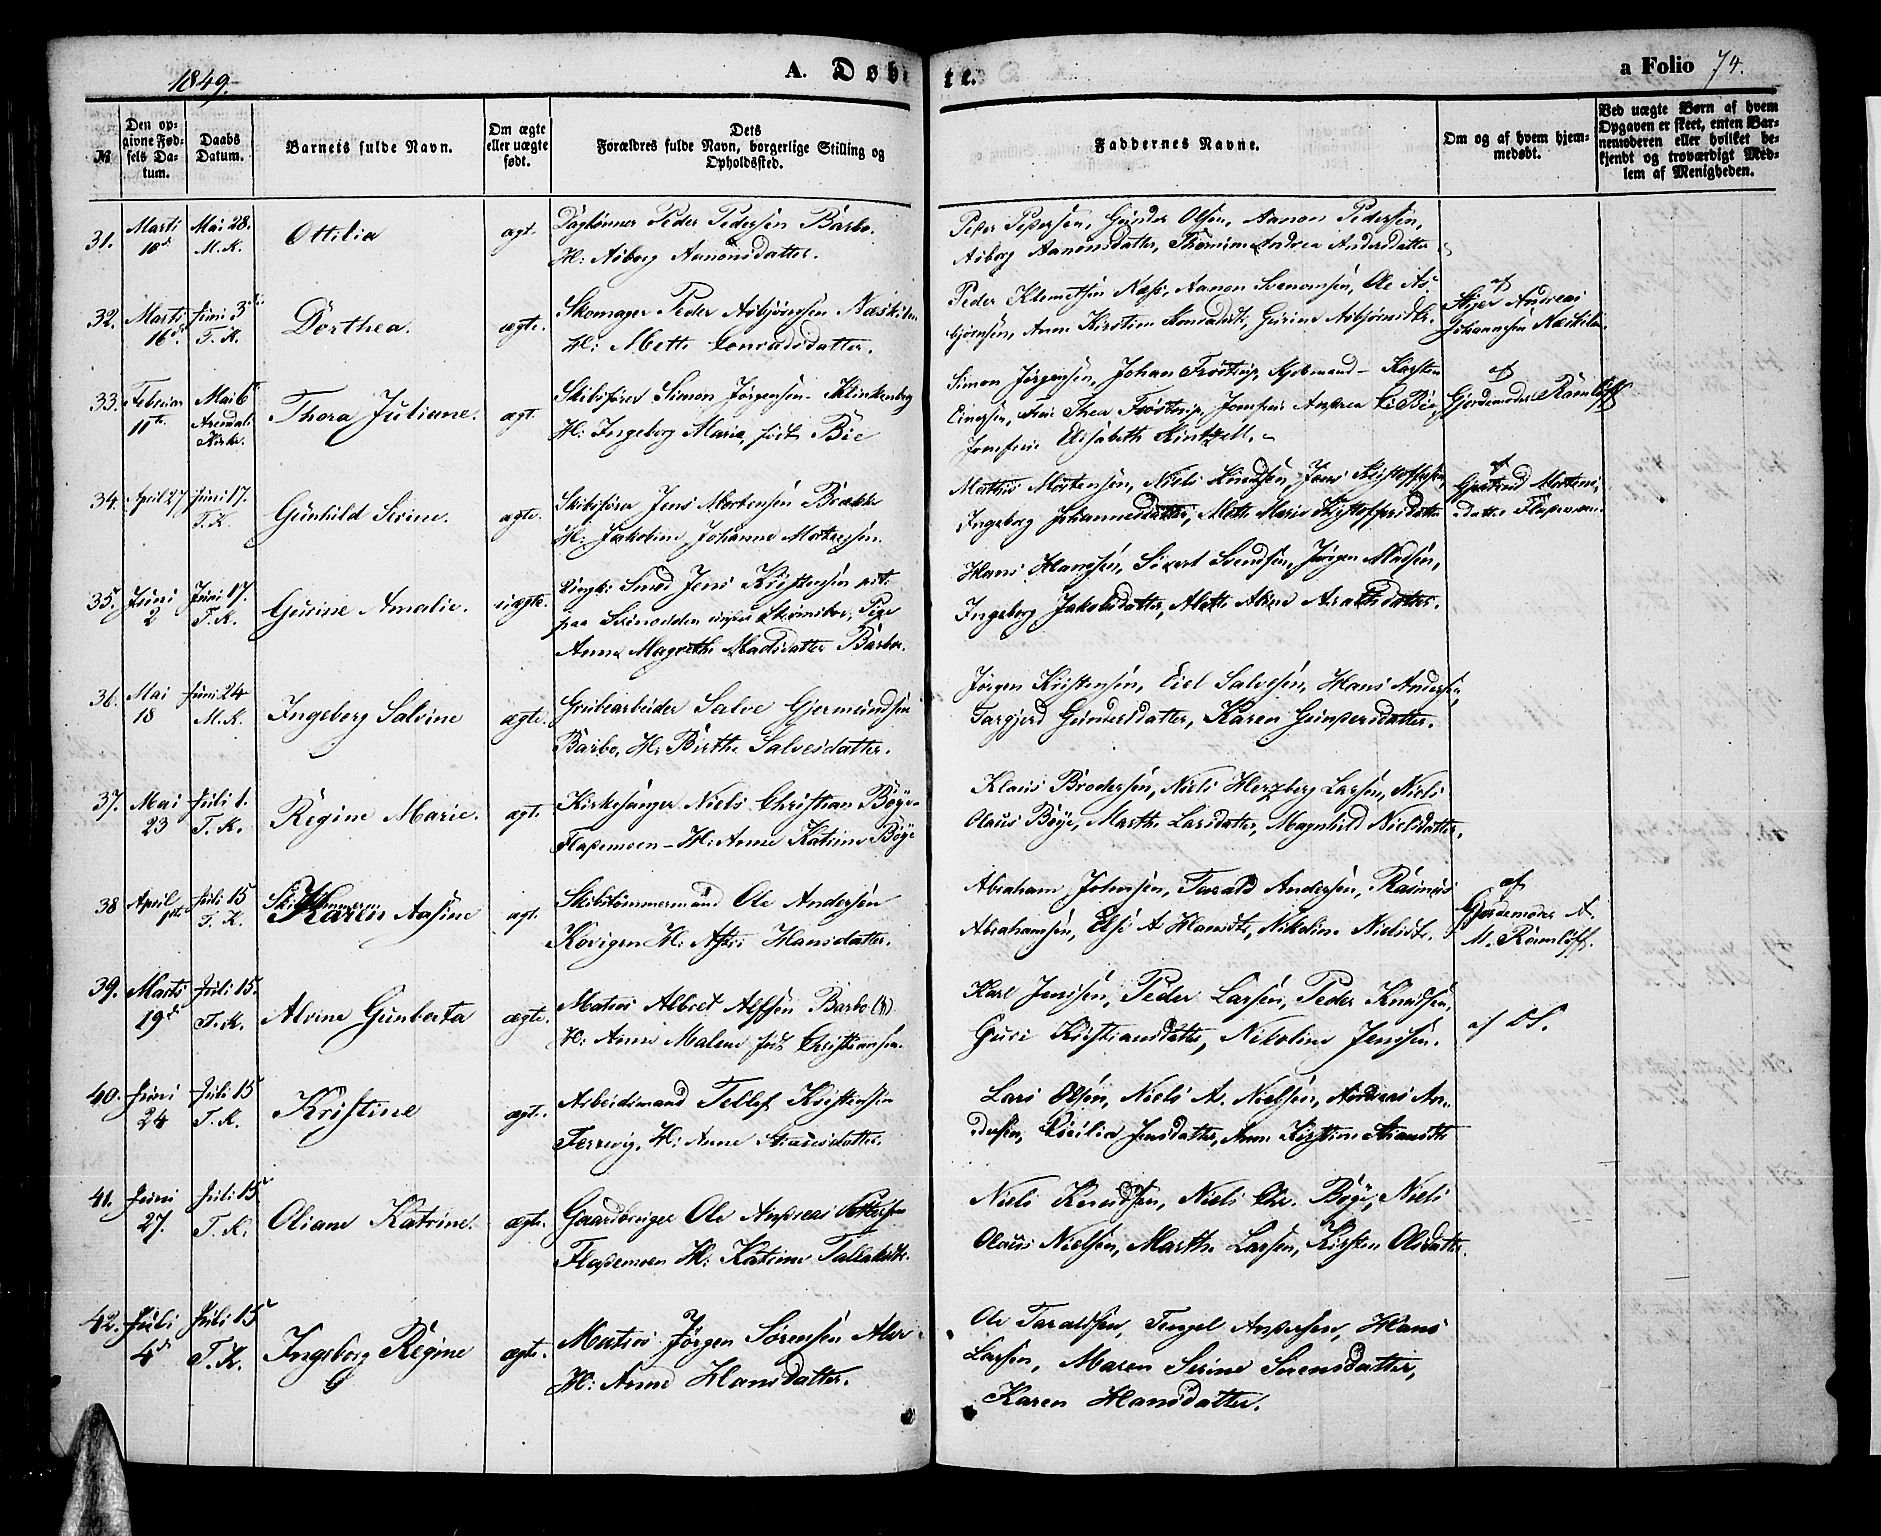 1849. A. Døbte. a Folio 74.
№
Den opgivne Fødsels Datum.
Daabs Datum.
Barnets fulde Navn.
Om ægte eller uægte født.
Dets Forældres fulde Navn, borgerlige Stilling og Opholdssted.
Faddernes Navne.
Om og af hvem hjemmedøbt.
Ved uægte Børn af hvem Opgaven er skeet, enten Barnemoderen eller hvilket bekjendt og troværdigt Medlem af Menigheden.
31. Marti 10d Mai 28. M.K. Ottilia ægt.
Dagkonner Peder Pedersen Barbo.
H: Asborg Aanonsdatter.
Peder Pedersen, Gunder Olsen, Aanon Pedersen,
Asborg Aanonsdatter, Andrea Andersdatter
32. Marti 16d Juni 3die T.K. Dorthea. ægte.
Skomager Peder Asbjørnsen Næskilen
H: Mette Conradsdatter.
Peder Klemetsen Næs, Aanon Svenomsen, Ole As-
bjørnsen, Anne Kirstine Konradsdt, Gurine Asbjørnsdtr.
af
Andreas
Johannesen Næskilen.
33. Februar 11te Mai 6 Arendals Kirke. Thora Juliane. ægt.
Skibsfører Simon Jørgensen Klinkenberg
H: Ingeborg Maria, født Bie
Simon Jørgensen, Johan Frostrup, Kjøbmand Karsten
Einersen, Thea Frostrup, Jomfrue Andrea C. Bie,
Jomfrue Elisabeth Kintzell.
af
Gjordemoder Rømløff
34. April 27 Juni 17. T.K. Gunhild Serine. ægte.
Skibsføre Jens Mortensen Brække
H: Jakobine Johanne Mortensen.
Mathis Mortensen, Niels Knudsen, Jens Kristoffersen,
Ingeborg Johannesdatter, Mette Marie Kristoffersdatter
af
Gjertrud Mortens-
datter Flademoen
35. Juni 2 Juni 17. T.K. Gurine Amalie. uægte.
Ungk: Smed Jens Kristensen
paa Pige
Anne Magrethe Madsdatter Barbo.
Hans Hansen, Sivert Svendsen, Jørgen Madsen,
Ingeborg Jakobsdatter, Alette
36. Mai 18 Juni 24 M.K. Ingeborg Salvine ægte.
Grubearbeider Salve Gjermundsen
Barbo, H: Birthe Salvesdatter.
Jørgen Kristensen, Eiel Salvesen, Hans Andersen,
Targjerd Gundersdatter, Karen Gundersdatter.
37. Mai 23 Juli 1. T.K. Regine Marie. ægt.
Kirkesanger Niels Christian Bøye
Flademoen – H: Anne Katrine Bøye
Klaus Brodersen, Niels Hertzberg Larsen, Niels
Olaus Bøye, Marthe Larsdatter, Magnhild Nielsdatter.
38 April 1ste Juli 15 T.K. Karen Aasine ægt.
Skibstømmermand Ole Andersen
Kovigen H: Asteri Hansdatter.
Abraham Johnsen, Tarald Andersen, Rasmus
Abrahamsen, Else A Hansdt, Nikoline Nielsdtr.
af
Gjordemoder A.
M. Rømløff.
39. Marts 19d Juli 15. T.K. Alvine Gunberta ægte.
Matros Albret Alfsen Barbo
H: Anne Malene født Christiansen.
Karl Jensen, Peder Larsen, Peder Knudsen,
Guri Kristiansdatter, Nikoline Jensen.
af DS.
40. Juni 24 Juli 15 T.K. Kristine ægt.
Arbeidsmand Tellef Kristensen
Terrevig, H: Anne
Lars Olsen, Niels A. Nielsen, Andreas An-
dersen, Cecilia Jensdatter, Anne Kirstine
41. Juni 27. Juli 15 T.K. Oliane Katrine. ægte.
Gaardbruger Ole Andreas Pettersen
Flademoen H: Katrine Tallaksdtr.
Niels Knudsen, Niels Chr. Bøye, Niels
Olaus Nielsen, Marthe Larsen, Kirsten Olsdatter.
42. Juli 4d Juli 15 T.K. Ingeborg Regine ægte.
Matros Jørgen Sørensen
H: Anne Hansdatter.
Ole Taraldsen, Tengel Andersen, Hans
Larsen, Maren Serine Sørensdatter,
Karen Hansdatter.